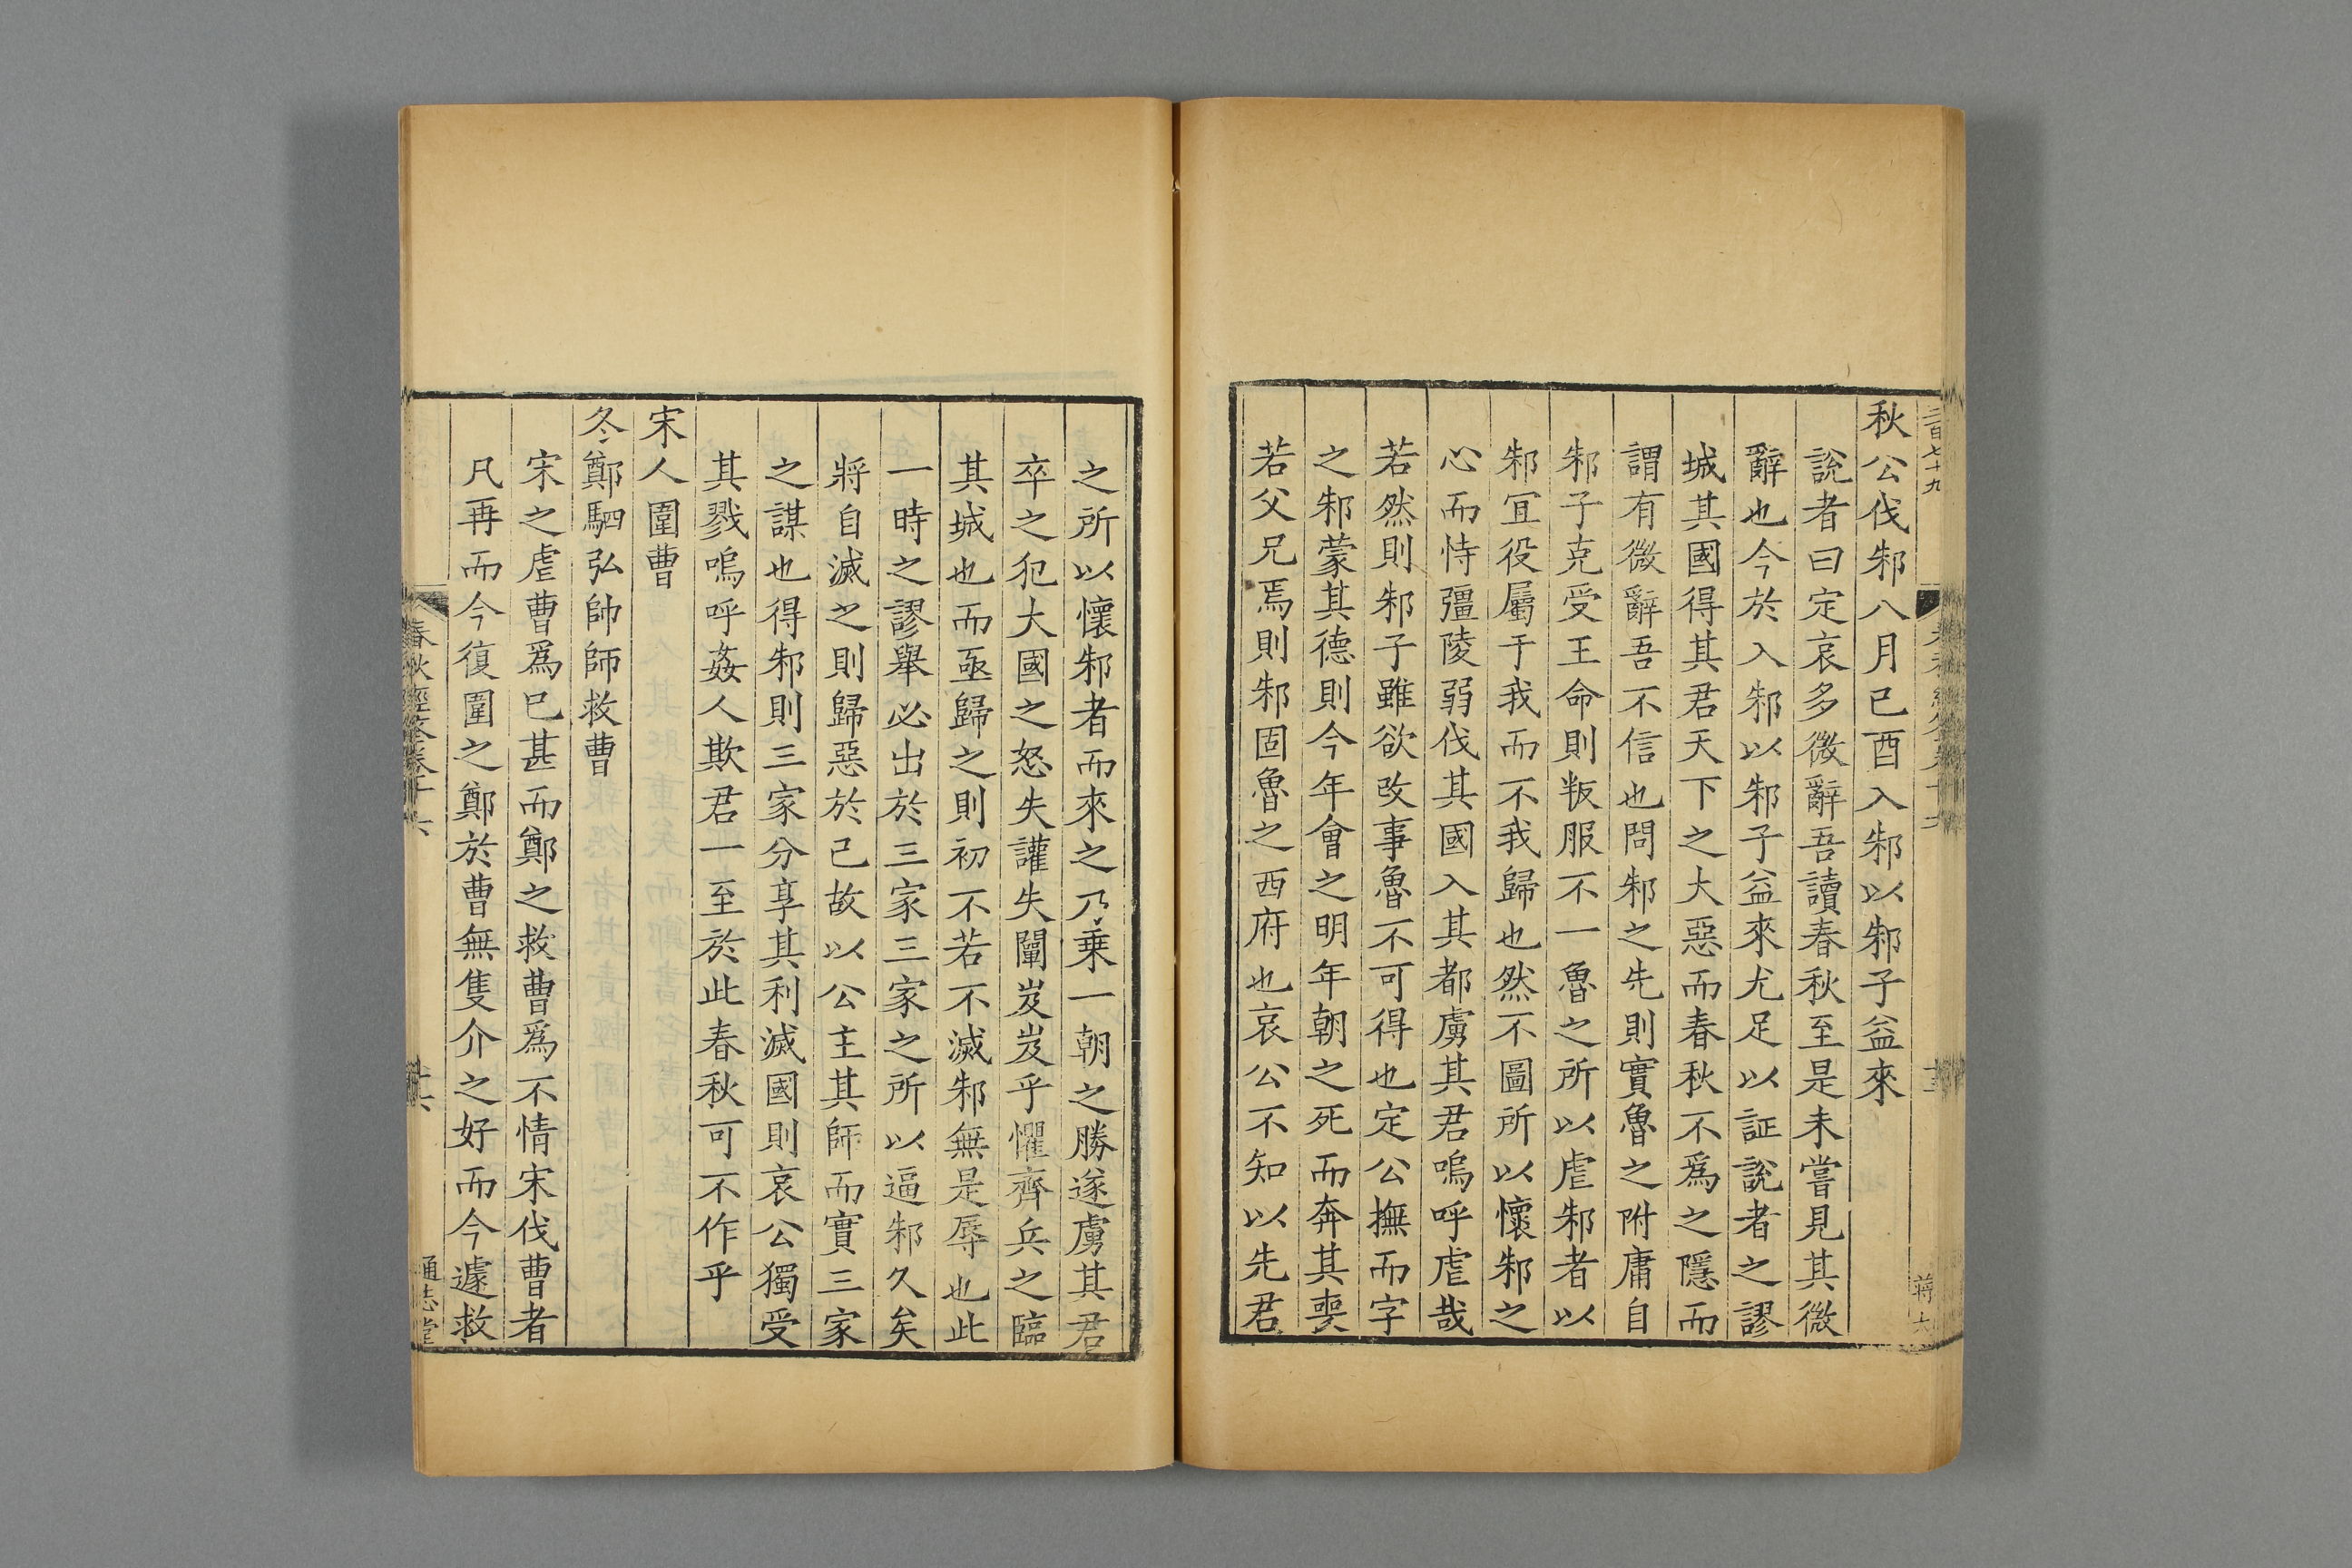 二百七十九
蔣六
秋公伐邾八月已酉入邾以邾子益來
說者曰定哀多微辭吾讀春秋至是未嘗見其微
辭也今於入邾以邾子益來尤足以証說者之謬
城其國得其君天下之大惡而春秋不爲之隱而
謂有微辭吾不信也問邾之先則實魯之附庸自
邾子克受王命則叛服不一魯之所以虐邾者以
邾宜役屬于我而不我歸也然不圖所以懷邾之
心而恃彊陵弱伐其國入其都虜其君嗚呼虐哉
若然則邾子雖欲改事魯不可得也定公撫而字
之邾蒙其德則今年會之明年朝之死而奔其喪
若父兄焉則邾固魯之西府也哀公不知以先君
之所以懷邾者而來之乃乗一朝之勝遂虜其君
卒之犯大國之怒失讙失闡岌岌乎懼齊兵之臨
其城也而亟歸之則初不若不滅邾無是辱也此
一時之謬舉必出於三家三家之所以逼邾久矣
將自滅之則歸惡於己故以公主其師而實三家
之謀也得邾則三家分享其利滅國則哀公獨受
其戮嗚呼姦人欺君一至於此春秋可不作乎
宋人圍曹
冬鄭駟弘帥師救曹
宋之虐曹爲已甚而鄭之救曹爲不情宋伐曹者
凡再而今復圍之鄭於曹無隻介之好而今遽救
春秋經筌卷十六
十六
通志堂